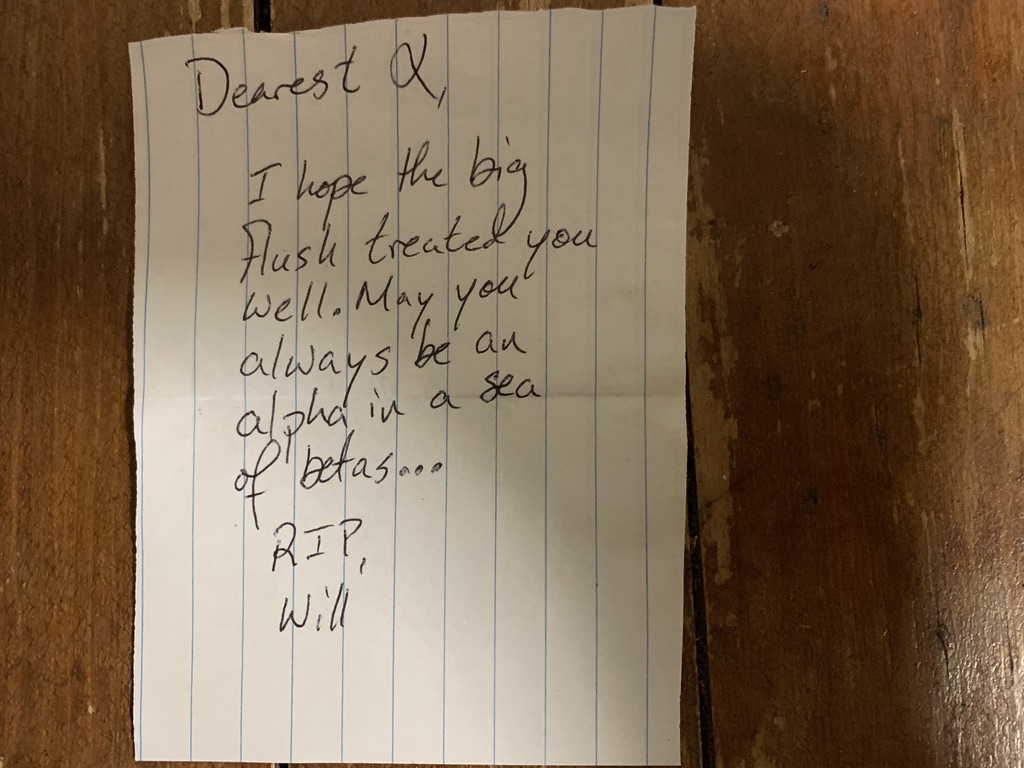 Dearest α,
I hope the big
flush treated you
well. May you
always be an
alpha in a sea
of betas...
RIP,
Will